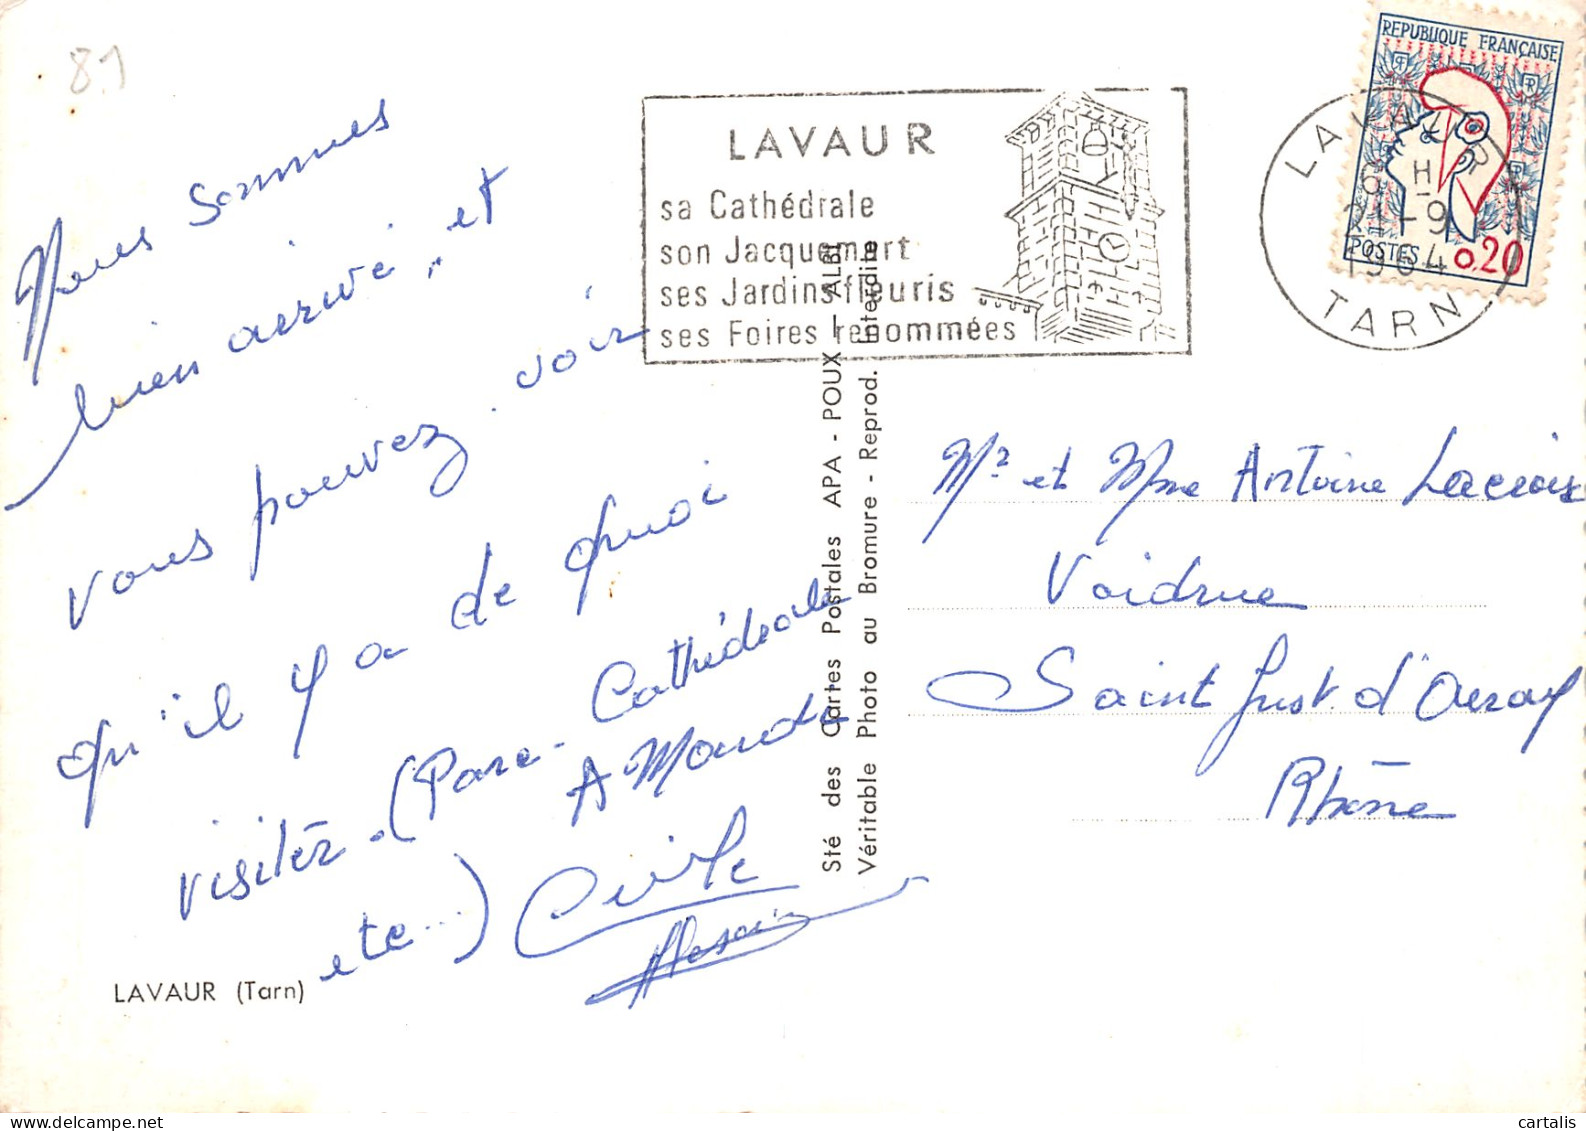 81
Nous sommes
bien arrivé, et
vous pouvez voir
qu'il y a de quoi
visiter - (Parc - Cathédrale
etc...)
LAVAUR (Tarn)
LAVAUR
sa Cathédrale
son Jacquemart
ses Jardins fleuris
ses Foires renommées
REPUBLIQUE FRANÇAISE
POSTES 0,20
LAVAUR
H
-9
1964
TARN
Sté des Cartes Postales APA - POUX - ALBI
Véritable Photo au Bromure - Reprod. Interdite
Mr et Mme Antoine Lacroix
Voidrue
Saint Just d'Avray
Rhône
cartalis